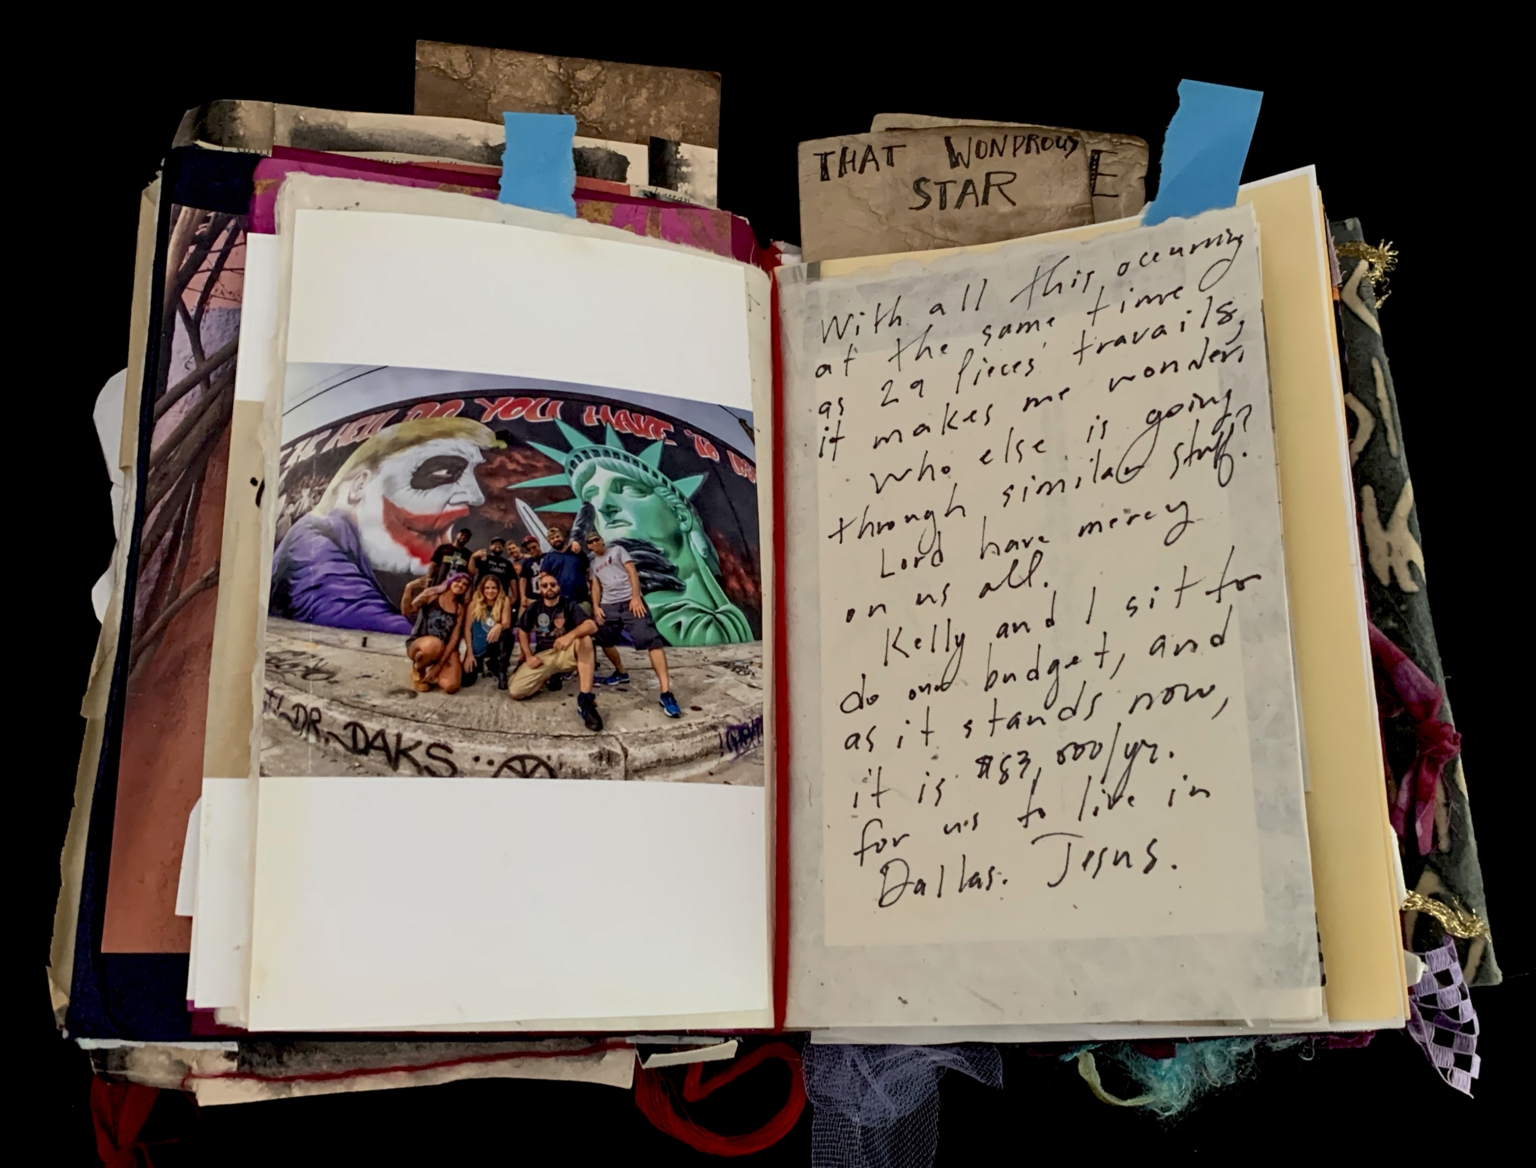 THAT WONDROUS
STAR
E
HELL DO YOU HAVE TO
DR. DAKS
With all this occurring
at the same time
as 29 Pieces' travails,
it makes me wonder,
who else is going
through similar stuff?
Lord have mercy
on us all.
Kelly and I sit to
do our budget, and
as it stands now,
it is $83,000/yr.
for us to live in
Dallas. Jesus.